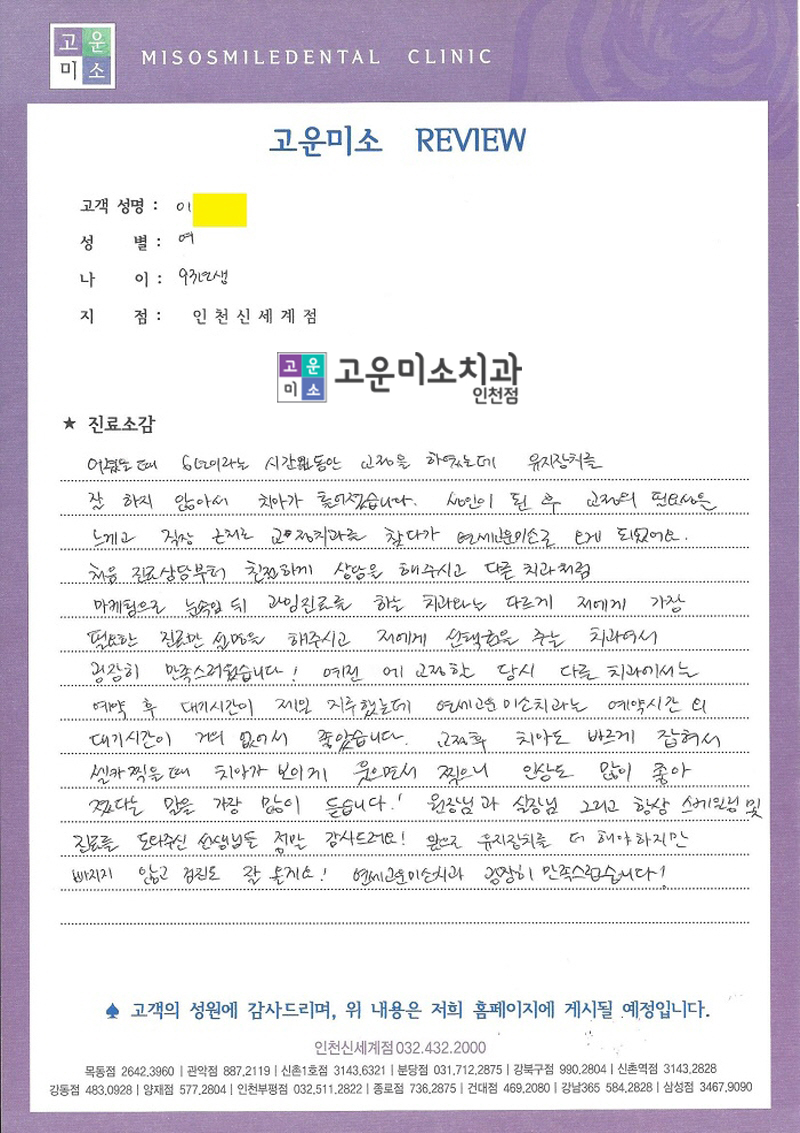 고운
미소
MISOSMILEDENTAL CLINIC
고운미소 REVIEW
고객 성명 : 이
성 별 : 여
나 이 : 93년생
지 점 : 인천신세계점
고운
미소
고운미소치과
인천점
★ 진료소감
어렸을때 6년이라는 시간동안 교정을 하였는데 유지장치를
잘 하지 않아서 치아가 틀어졌습니다. 성인이 된 후 교정의 필요성을
느끼고 직장 근처로 교정치과를 찾다가 연세고운미소로 오게 되었어요.
처음 진료상담부터 친절하게 상담을 해주시고 다른 치과처럼
마케팅으로 눈속임 뒤 과잉진료를 하는 치과와는 다르게 저에게 가장
필요한 진료만 설명을 해주시고 저에게 선택권을 주는 치과여서
굉장히 만족스러웠습니다! 예전에 교정한 당시 다른 치과에서는
예약 후 대기시간이 제일 지루했는데 연세고운미소치과는 예약시간 외
대기시간이 거의 없어서 좋았습니다. 교정후 치아도 바르게 잡혀서
셀카찍을때 치아가 보이게 웃으면서 찍으니 인상도 많이 좋아
졌다는 말을 가장 많이 듣습니다! 원장님과 실장님 그리고 항상 스케일링 및
진료를 도와주신 선생님들 정말 감사드려요! 앞으로 유지장치를 더 해야하지만
빠지지 않고 검진도 잘 올게요! 연세고운미소치과 굉장히 만족스럽습니다!
♠ 고객의 성원에 감사드리며, 위 내용은 저희 홈페이지에 게시될 예정입니다.
인천신세계점032.432.2000
목동점 2642.3960 | 관악점 887.2119 | 신촌1호점 3143.6321 | 분당점 031.712.2875 | 강북구점 990.2804 | 신촌역점 3143.2828
강동점 483.0928 | 양재점 577.2804 | 인천부평점 032.511.2822 | 종로점 736.2875 | 건대점 469.2080 | 강남365 584.2828 | 삼성점 3467.9090